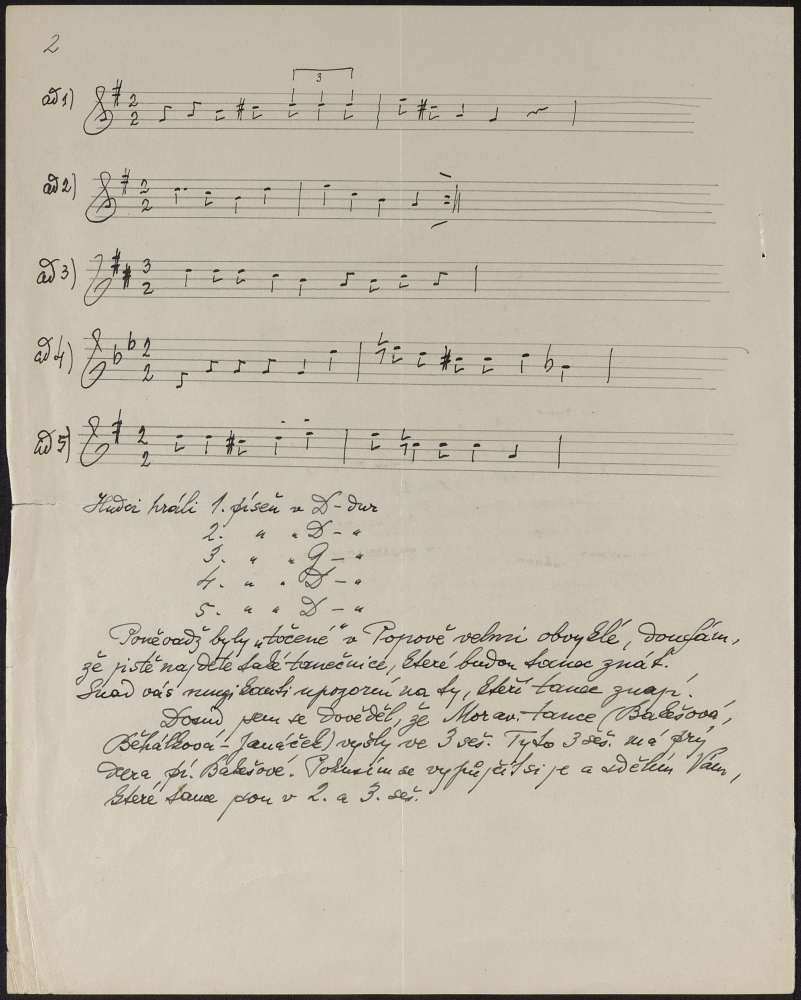 2
ad 1)
3
2
2
ad 2)
2
2
ad 3)
3
2
ad 4)
2
2
ad 5)
2
2
Hudci hráli 1. píseň v D-dur
2. " " D - "
3. " " G - "
4. " " D - "
5. " " D - "
Poněvadž byly „točené" v Popově velmi obvyklé, doufám,
že jistě najdete také tanečnice, které budou tanec znát.
Snad vás muzikanti upozorní na ty, kteří tanec znají.
Dosud jsem se dověděl, že Morav. tance (Bakešová,
Běhálková - Janáček) vyšly ve 3 seš. Tyto 3 seš. má prý
dcera pí. Bakešové. Pokusím se vypůjčit si je a sdělím Vám,
které tance jsou v 2. a 3. seš.